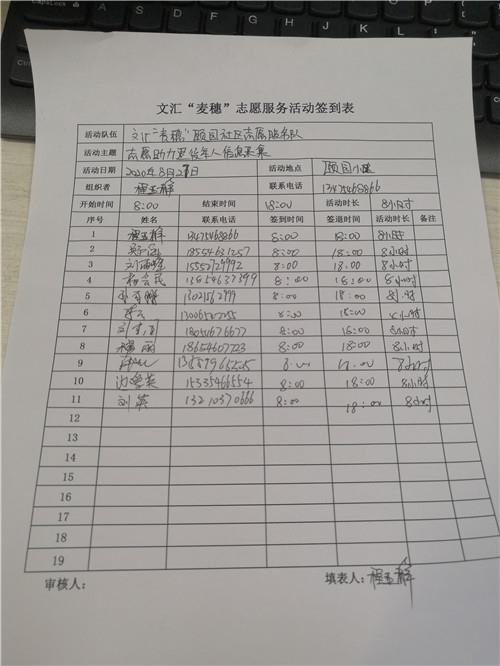 文汇“麦穗”志愿服务活动签到表
活动队伍 文汇“麦穗”颐园社区志愿服务队
活动主题 志愿助力退役军人信息采集
活动日期 2020年8月27日 活动地点 颐园小区
组织者 程玉静 联系电话 13475468866
开始时间 8:00 结束时间 18:00 活动时长 8小时
序号 姓名 联系电话 签到时间 签退时间 活动时长 备注
1 程玉静 13475468866 8:00 18:00 8小时
2 18554631257 8:00 18:00 8小时
3 15552729992 8:00 18:00 8小时
4 杨会民 13854637399 8:00 18:00 8小时
5 8:00 18:00 8小时
6 8:00 18:00 8小时
7 8:00 18:00 8小时
8 18654607723 8:00 18:00 8小时
9 8:00 8小时
10 15335466554 8:00 18:00 8小时
11 刘英 13210370666 8:00 18:00 8小时
12
13
14
15
16
17
18
19
审核人: 填表人: 程玉静